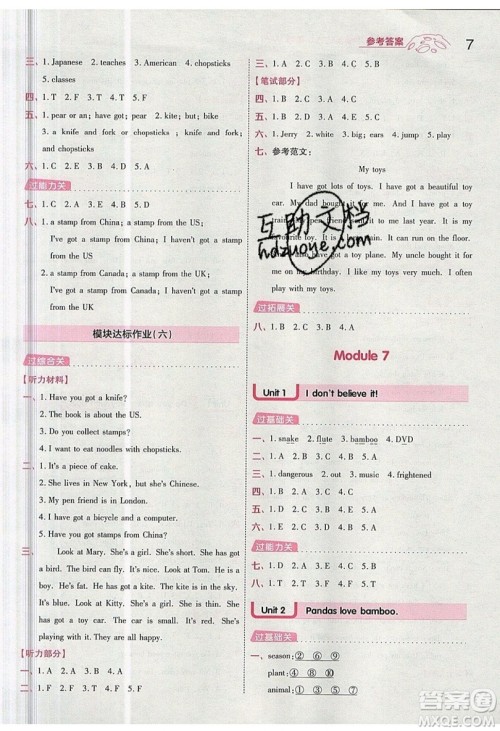 参考答案
7
三、1. Japanese 2. teaches 3. American 4. chopsticks
5. classes
四、1. T 2. F 3. T 4. F 5. F
五、1. pear or an; have got a pear 2. kite; but; have
3. a knife and fork or chopsticks; a knife and fork;
and chopsticks
六、1. C 2. B 3. D 4. A
过能力关
七、1. C 2. B 3. D 4. A 5. E
八、1. a stamp from China; a stamp from the US;
I've got a stamp from China; I haven't got a stamp
from the US
2. a stamp from Canada; a stamp from the UK;
I've got a stamp from Canada; I haven't got a
stamp from the UK
模块达标作业(六)
过综合关
【听力材料】
一、1. Have you got a knife?
2. The book is about the US.
3. Do you collect stamps?
4. I want to eat noodles with chopsticks.
二、1. It's a piece of cake.
2. She lives in New York, but she's Chinese.
3. My pen friend is in London.
4. I have got a bicycle and a computer.
5. I haven't got a kite.
三、 Look at Mary. She's a girl. She's short. She has
got a bird. The bird can fly. Look at Jack. He's a
boy. He has got a kite. The kite is in the sky.
Look at Kitty. She's a girl. She's tall. She has
got a toy car. The car is small. The car is red.
Look at Sam. He's a boy. He has got a dog. He's
playing with it. They are all happy.
【听力部分】
一、1. B 2. C 3. B 4. C 5. A
二、1. F 2. F 3. T 4. F 5. T
三、1. B 2. A 3. C 4. B 5. C
【笔试部分】
四、1. A 2. C 3. B 4. A 5. A
五、1. A 2. B 3. C 4. B 5. A
六、1. Jerry 2. white 3. big; ears 4. jump 5. play
七、参考范文:
My toys
I have got lots of toys. I have got a beautiful toy
car. My dad bought it for me. And I have got a
toy train. My pen friend gave it to me. It is my
favourite toy. It can run on the floor.
I have also got a toy plane. My uncle bought it for
me on my birthday. I like my toys very much. I often
play with my toys.
过拓展关
八、1. B 2. A 3. B 4. B 5. A
Module 7
Unit 1 I don't believe it!
过基础关
一、1. snake 2. flute 3. bamboo 4. DVD
二、1. B 2. A 3. C 4. B 5. A
三、1. dangerous 2. out 3. music 4. frightened
四、1. B 2. B 3. A 4. B 5. A
五、1. D 2. C 3. B 4. E 5. A
六、1. E 2. C 3. D 4. B 5. A
过能力关
七、1. T 2. F 3. F 4. F 5. T
Unit 2 Pandas love bamboo.
过基础关
一、season: ② ⑥ ⑨
plant: ① ⑧ ⑩
animal: ③ ④ ⑤ ⑦
互助文档
hdzuoye.com
答案圈
MXQE.COM